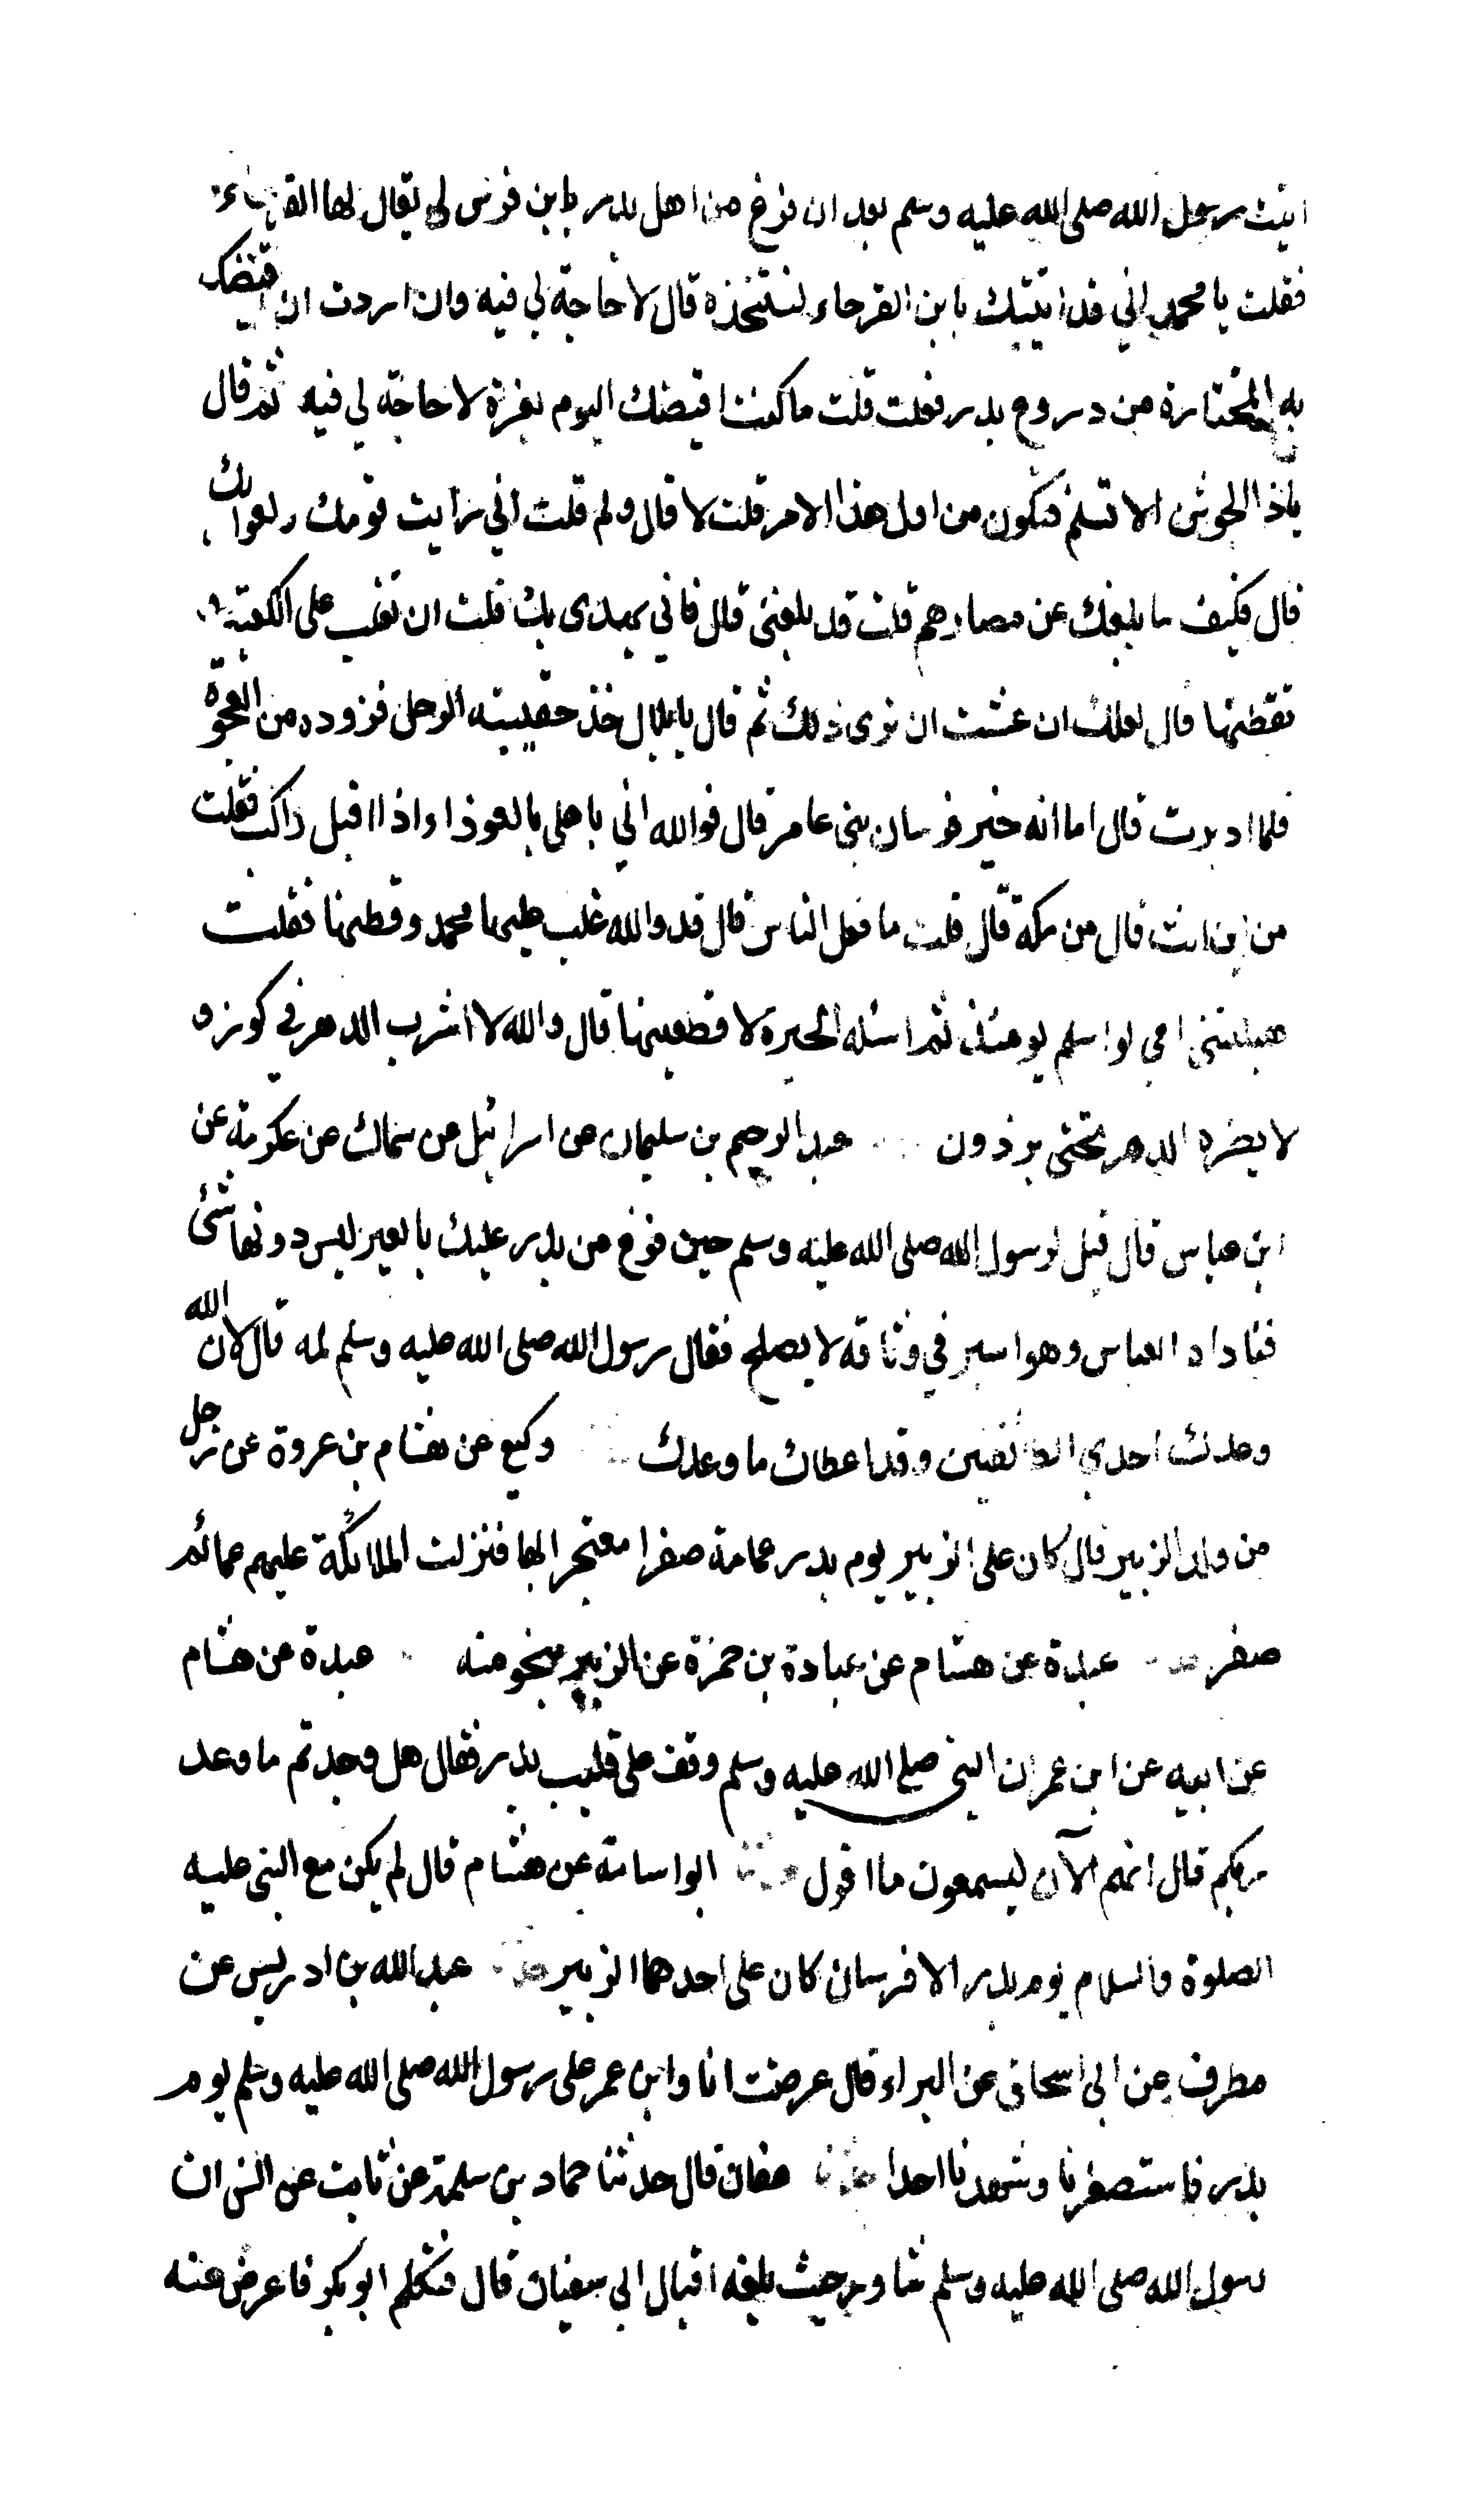 اتيت رسول الله صلى الله عليه وسلم بعد ان فرغ من اهل بدر بابن فرس لي يقال لها القرحاء
فقلت يا محمد اني قد اتيتك بابن القرحاء لتتخذه قال لا حاجة لي فيه وان اردت ان اقيضك
به المختارة من دروع بدر فعلت قلت ما كنت اقيضك اليوم بغرة لا حاجة لي فيه ثم قال
ياذا الجوشن الا تسلم فتكون من اول هذا الامر قلت لا قال ولم قلت اني رايت قومك ولعوا بك
قال فكيف ما بلغك عن مصارهم قلت قد بلغني قال فاني يهدى بك قلت ان تغلب على الكعبة
تقطنها قال لعلك ان عشت ان ترى ذلك ثم قال يا بلال خذ حقيبته الرحل فزوده من العجوة
فلما ادبرت قال اما انه خير فرسان بني عامر قال فوالله اني باهلي بالعوذا واذا اقبل راكب فقلت
من اين انت قال من مكة قال قلت ما فعل الناس قال قد والله غلب عليها محمد وقطنها فقلت
هبلتني امي لو اسلم يومئذ ثم اسئله الحيرة لا قطعينها قال والله لا اشرب الدهر في كوز و
لا يضره الدهر تحتي برذون عبد الرحيم بن سليمان عن اسرائيل عن سماك عن عكرمة عن
ابن عباس قال قيل لرسول الله صلى الله عليه وسلم حين فرغ من بدر عليك بالعير ليس دونها شئ
فناداه العباس وهو اسير في وثاقه لا يصلح فقال رسول الله صلى الله عليه وسلم لمه قال لان الله
وعدك احدي الطائفتين وقد اعطاك ما وعدك وكيع عن هشام بن عروة عن رجل
من ولد الزبير قال كان على الزبير يوم بدر عمامة صفرا معتجرا بها فنزلت الملائكة عليهم عمائم
صفر عبدة عن هشام عن عبادة بن حمزة عن الزبير بنحو منه عبدة عن هشام
عن ابيه عن ابن عمر ان النبي صلى الله عليه وسلم وقف على قليب بدر فقال هل وجدتم ما وعد
ربكم قال انهم الآن ليسمعون ما اقول ابو اسامة عن هشام قال لم يكن مع النبي عليه
الصلوة والسلام يوم بدر الا فرسان كان على احدهما الزبير عبد الله بن ادريس عن
مطرف عن ابي اسحاق عن البراء قال عرضت انا وابن عمر على رسول الله صلى الله عليه وسلم يوم
بدر فاستصغرنا وشهدنا احدا حدثنا عفان قال حدثنا حماد بن سلمة عن ثابت عن انس ان
رسول الله صلى الله عليه وسلم شاور حيث بلغه اقبال ابي سفيان قال فتكلم ابو بكر فاعرض عنه